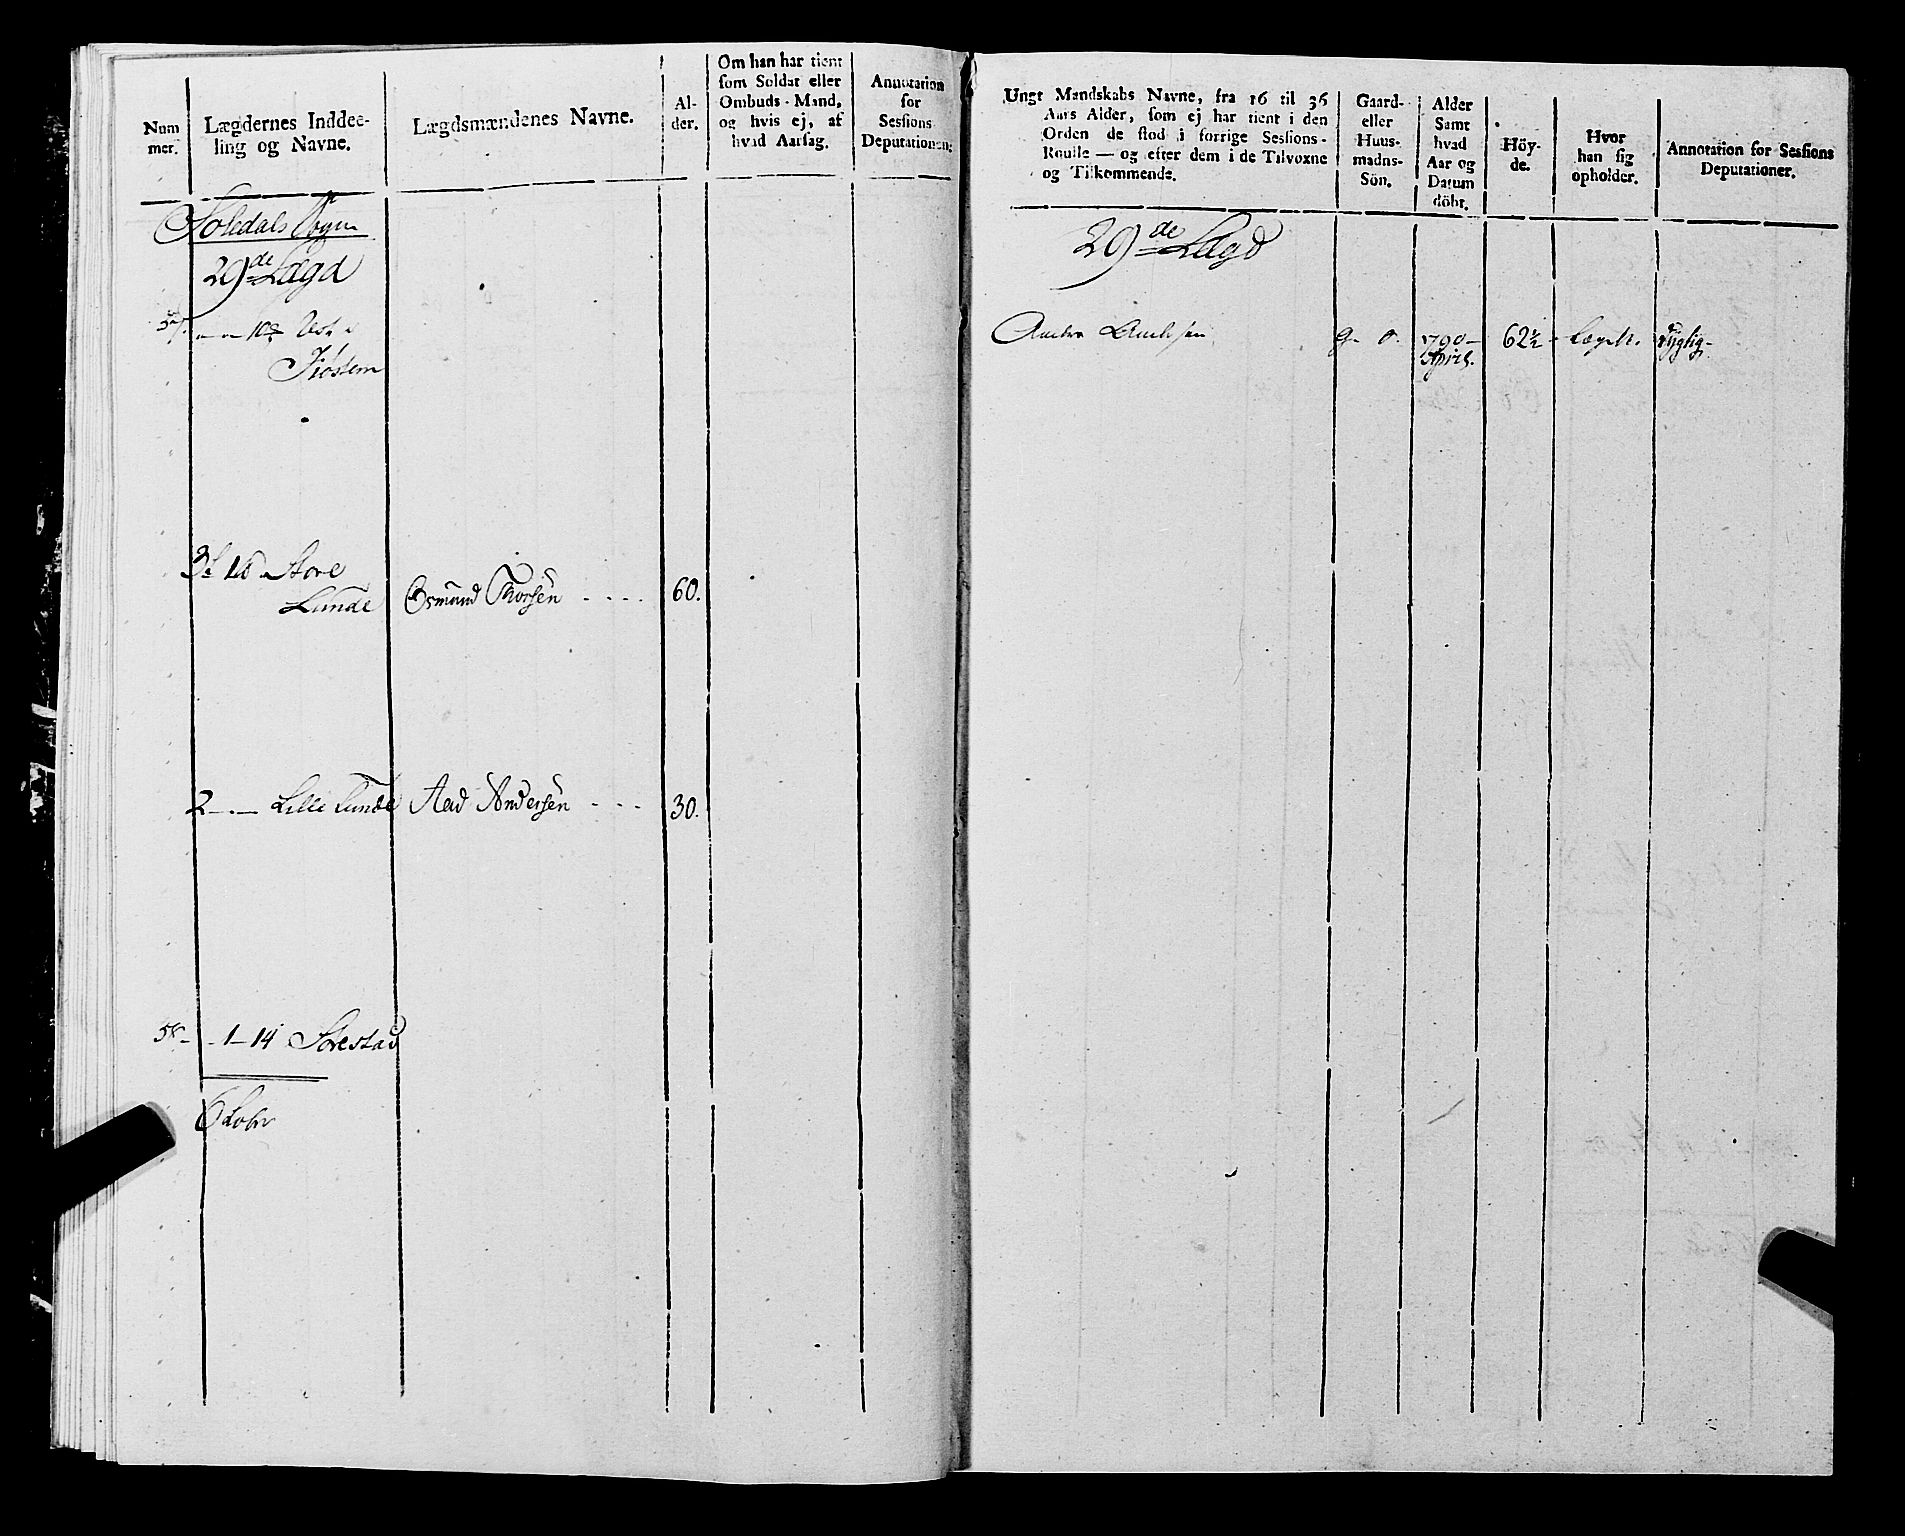 Num
mer.
Lægdernes Inddee-
ling og Navne.
Lægdsmændenes Navne.
Al-
der.
Om han har tient
som Soldat eller
Ombuds-Mand,
og hvis ej, af
hvad Aarsag.
Annotation
for
Sessions
Deputationen.
Sogn
29de Lægd
57.
3 16 Store
Lunde Osmund Thorsen 60.
2 Lille Lunde Aad Andersen 30.
58 1 14 Sorestad
6
Ungt Mandskabs Navne, fra 16 til 36
Aars Alder, som ej har tient i den
Orden de stod i forrige Sessions-
Roulle — og efter dem i de Tilvoxne
og Tilkommende.
Gaard-
eller
Huus-
madns-
Sön.
Alder
Samt
hvad
Aar og
Datum
döbt.
Höy-
de.
Hvor
han sig
opholder.
Annotation for Sessions
Deputationer.
29de Lægd
g. 790 62½ Lægdt. dygtig
April.